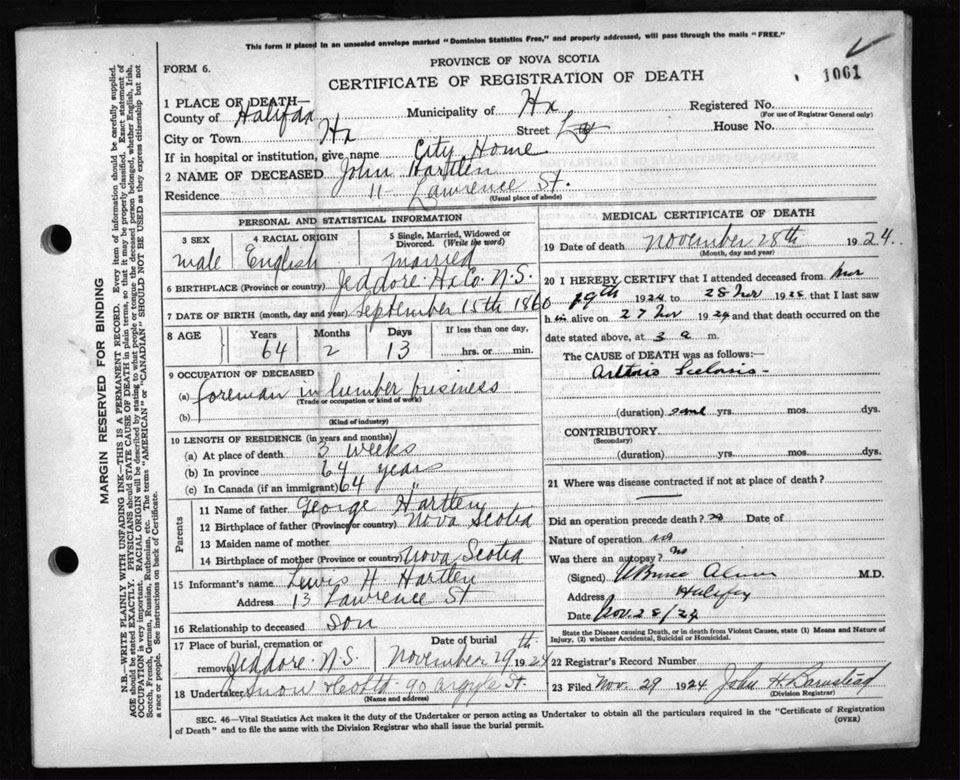 This form if placed in an unsealed envelope marked "Dominion Statistics Free," and properly addressed, will pass through the mails "FREE."
FORM 6.
PROVINCE OF NOVA SCOTIA
CERTIFICATE OF REGISTRATION OF DEATH
1061
1 PLACE OF DEATH—
County of Halifax Municipality of Hx Registered No.
(For use of Registrar General only)
City or Town Hx Street House No.
If in hospital or institution, give name City Home
2 NAME OF DECEASED John Hartlen
Residence 11 Lawrence St.
(Usual place of abode)
PERSONAL AND STATISTICAL INFORMATION
3 SEX 4 RACIAL ORIGIN 5 Single, Married, Widowed or Divorced. (Write the word)
male English married
6 BIRTHPLACE (Province or country) Jeddore Hx Co. N.S.
7 DATE OF BIRTH (month, day and year) September 15th 1860
8 AGE Years Months Days If less than one day,
64 2 13 hrs. or min.
9 OCCUPATION OF DECEASED
(a) foreman in lumber business
(Trade or occupation or kind of work)
(b)
(Kind of industry)
10 LENGTH OF RESIDENCE (in years and months)
(a) At place of death 3 weeks
(b) In province 64 years
(c) In Canada (if an immigrant) 64 "
Parents
11 Name of father George Hartlen
12 Birthplace of father (Province or country) Nova Scotia
13 Maiden name of mother
14 Birthplace of mother (Province or country) Nova Scotia
15 Informant's name Lewis H. Hartlen
Address 13 Lawrence St
16 Relationship to deceased son
17 Place of burial, cremation or removal Jeddore N.S. Date of burial November 29th 1924
18 Undertaker Snow & Co Ltd. 90 Argyle St.
(Name and address)
MEDICAL CERTIFICATE OF DEATH
19 Date of death November 28th 1924.
(Month, day and year)
20 I HEREBY CERTIFY that I attended deceased from Nov
19th 1924 to 28 Nov 1928 that I last saw
h im alive on 27 Nov 1924 and that death occurred on the
date stated above, at 3 a m.
The CAUSE OF DEATH was as follows:
(duration) yrs. mos. dys.
CONTRIBUTORY
(Secondary)
(duration) yrs. mos. dys.
21 Where was disease contracted if not at place of death?
Did an operation precede death? no Date of
Nature of operation
Was there an autopsy? no
(Signed) M.D.
Address Halifax
Date Nov. 28/24
State the Disease causing Death, or in death from Violent Causes, state (1) Means and Nature of
Injury, (2) whether Accidental, Suicidal or Homicidal.
22 Registrar's Record Number
23 Filed Nov. 29 1924 John H Barnstead
(Division Registrar)
SEC. 46—Vital Statistics Act makes it the duty of the Undertaker or person acting as Undertaker to obtain all the particulars required in the "Certificate of Registration
of Death" and to file the same with the Division Registrar who shall issue the burial permit.
(OVER)
MARGIN RESERVED FOR BINDING
N.B.—WRITE PLAINLY WITH UNFADING INK—THIS IS A PERMANENT RECORD. Every item of information should be carefully supplied.
AGE should be stated EXACTLY. PHYSICIANS should STATE CAUSE OF DEATH in plain terms, so that it may be properly classified. Exact statement of
OCCUPATION is very important. RACIAL ORIGIN will be described by stating to what people or tongue the deceased person belonged, whether English, Irish,
Scotch, French, German, Russian, Ruthenian, etc. The terms "AMERICAN" or "CANADIAN" SHOULD NOT BE USED as they express citizenship but not
a race or people. See instructions on back of Certificate.